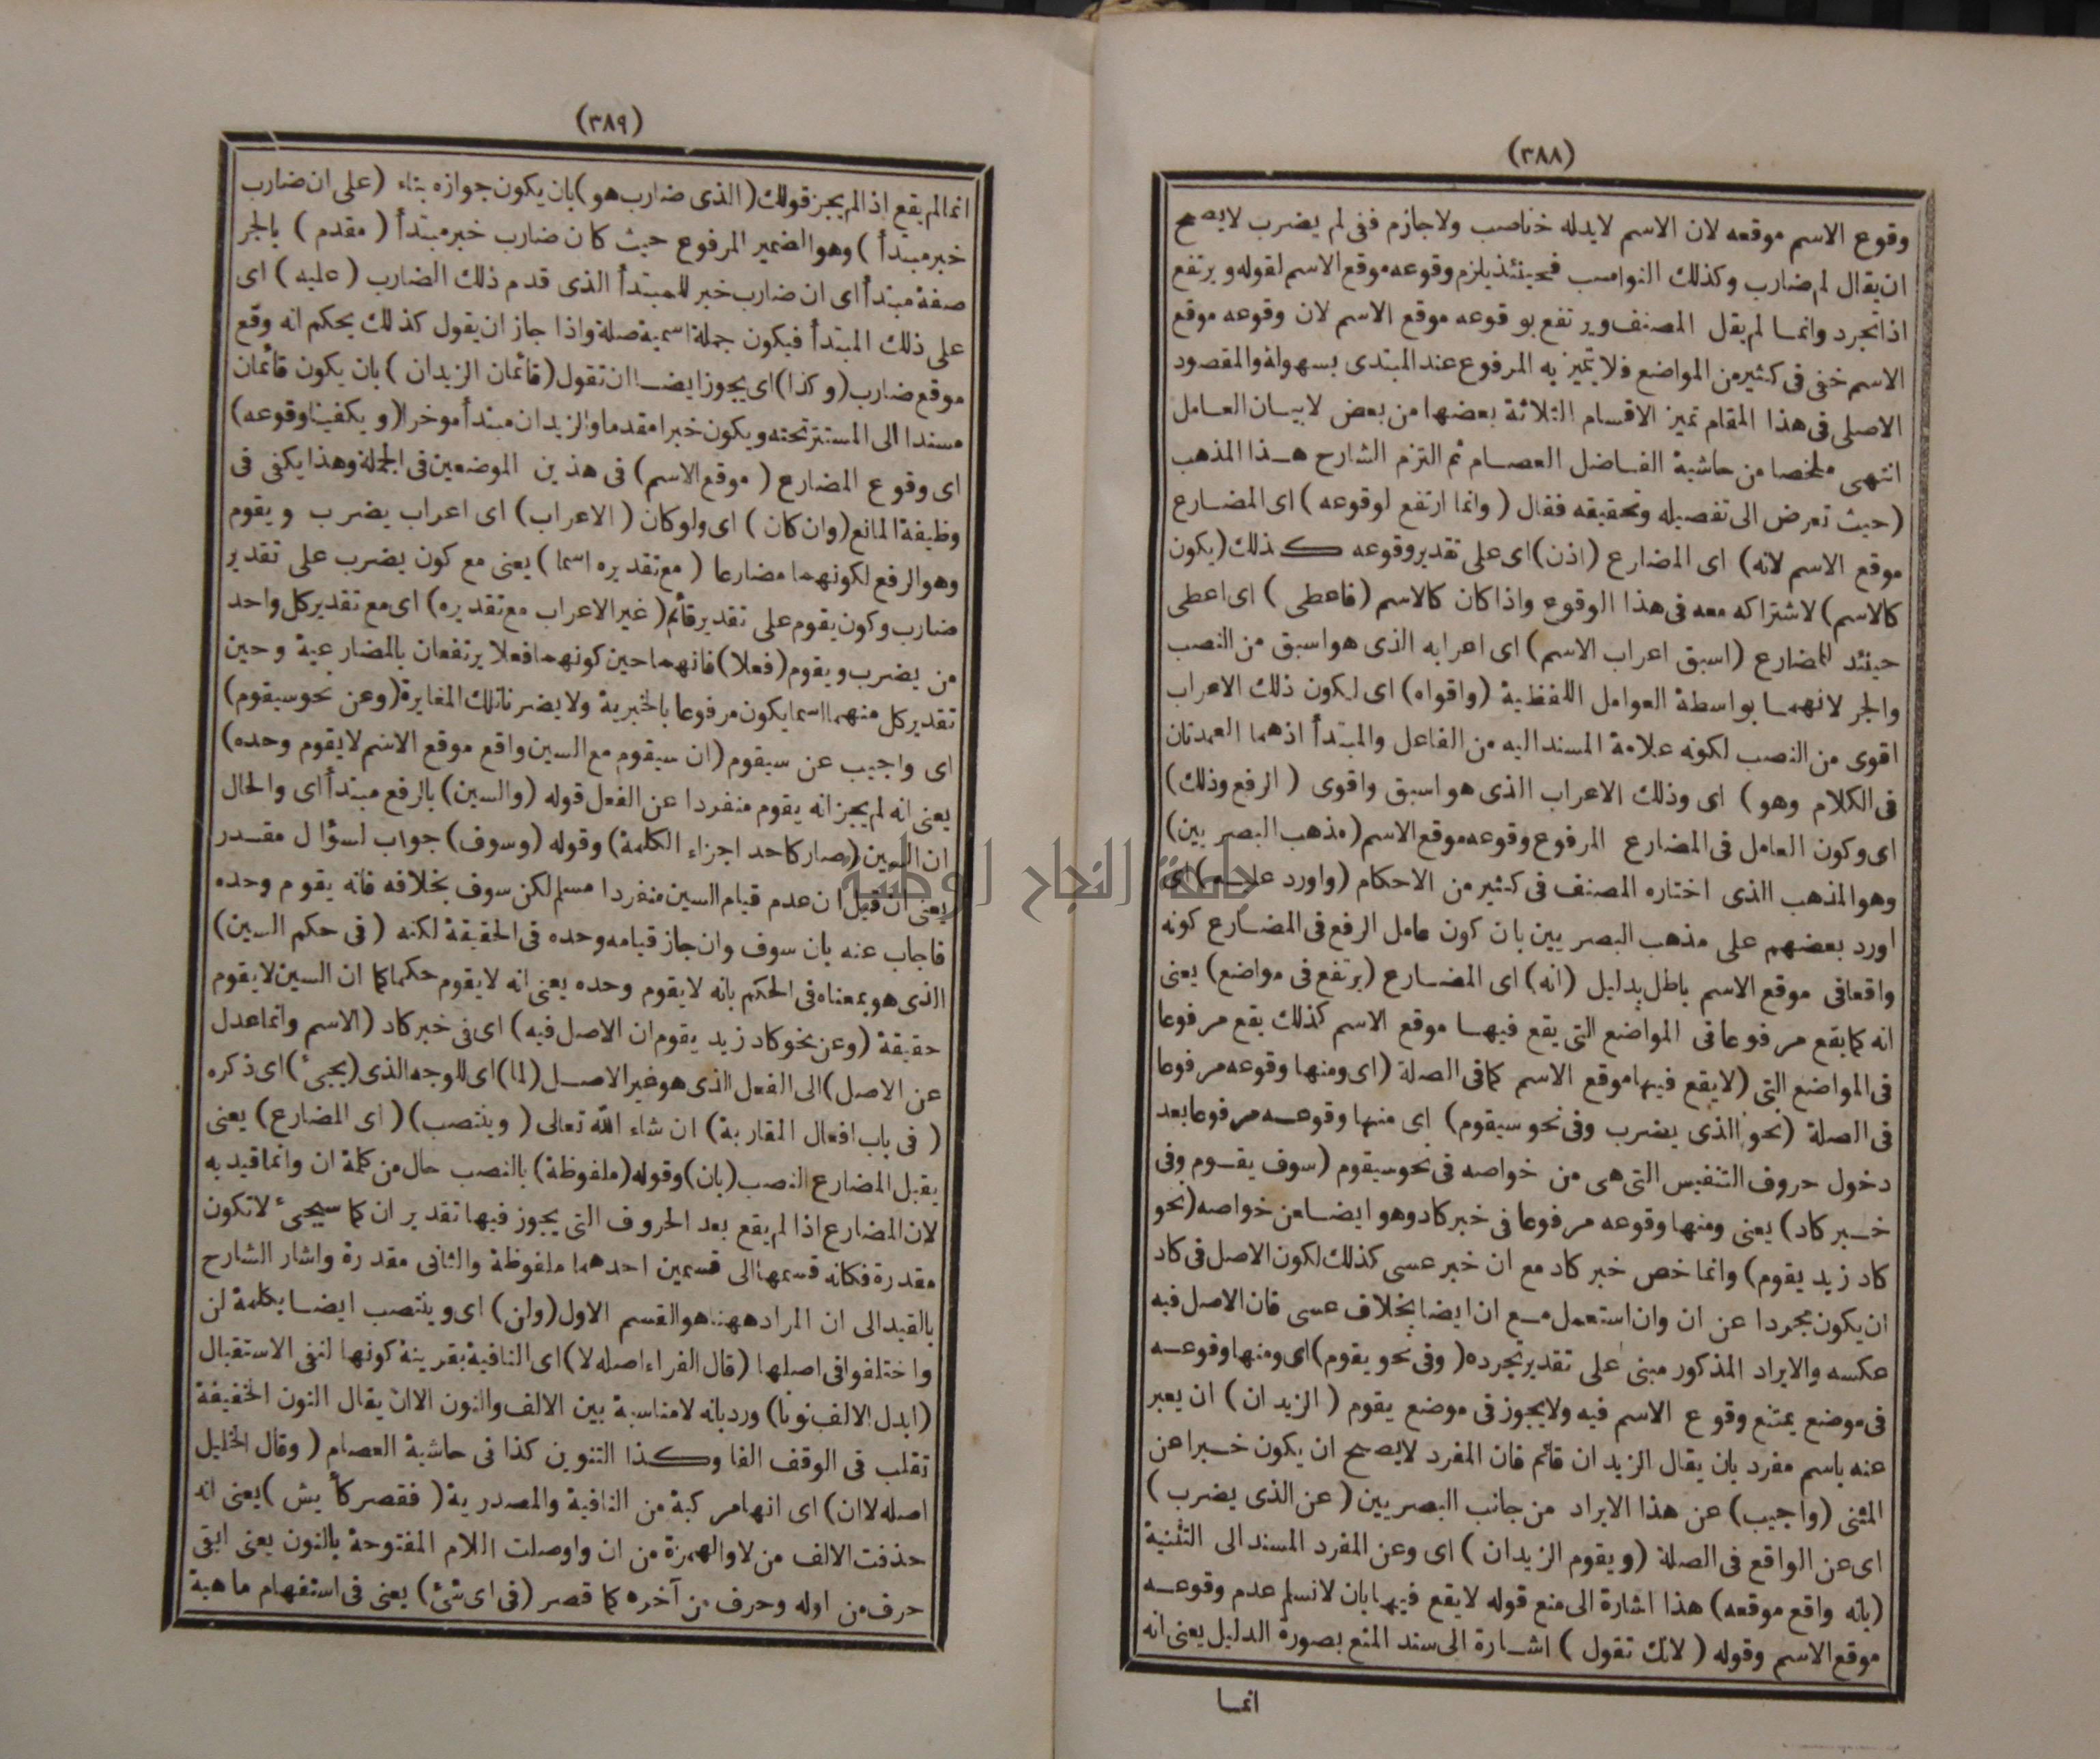 (٣٨٨)
وقوع الاسم موقعه لان الاسم لا يدله ناصب ولا جازم ففى لم يضرب لا يصح
ان يقال لم ضارب وكذلك النواصب فحينئذ يلزم وقوعه موقع الاسم لقوله ويرتفع
اذا تجرد وانما لم يقل المصنف ويرتفع بوقوعه موقع الاسم لان وقوعه موقع
الاسم خفى فى كثير من المواضع فلا تميز به المرفوع عند المبتدى بسهولة والمقصود
الاصلى فى هذا المقام تميز الاقسام الثلاثة بعضها من بعض لا بيان العامل
انتهى ملخصا من حاشية الفاضل العصام ثم التزم الشارح هذا المذهب
(حيث تعرض الى تفصيله وتحقيقه فقال (وانما ارتفع لوقوعه) اى المضارع
موقع الاسم لانه) اى المضارع (اذن) اى على تقدير وقوعه كذلك (يكون
كالاسم) لاشتراكه معه فى هذا الوقوع واذا كان كالاسم (فاعطى) اى اعطى
حينئذ المضارع (اسبق اعراب الاسم) اى اعرابه الذى هو اسبق من النصب
والجر لانهما بواسطة العوامل اللفظية (واقواه) اى ليكون ذلك الاعراب
اقوى من النصب لكونه علامة المسند اليه من الفاعل والمبتدأ اذهما العمدتان
فى الكلام وهو) اى وذلك الاعراب الذى هو اسبق واقوى (الرفع وذلك)
اى وكون العامل فى المضارع المرفوع وقوعه موقع الاسم (مذهب البصريين)
وهو المذهب الذى اختاره المصنف فى كثير من الاحكام (واورد عليه) اى
اورد بعضهم على مذهب البصريين بان كون عامل الرفع فى المضارع كونه
واقعا فى موقع الاسم باطل بدليل (انه) اى المضارع (يرتفع فى مواضع) يعنى
انه كما يقع مرفوعا فى المواضع التى يقع فيها موقع الاسم كذلك يقع مرفوعا
فى المواضع التى (لا يقع فيها موقع الاسم كما فى الصلة (اى ومنها وقوعه مرفوعا
فى الصلة (نحو الذى يضرب وفى نحو سيقوم) اى منها وقوعه مرفوعا بعد
دخول حروف التنفيس التى هى من خواصه فى نحو سيقوم (سوف يقوم وفى
خبر كاد) يعنى ومنها وقوعه مرفوعا فى خبر كاد وهو ايضا من خواصه (نحو
كاد زيد يقوم) وانما خص خبر كاد مع ان خبر عسى كذلك لكون الاصل فى كاد
ان يكون مجردا عن ان وان استعمل مع ان ايضا بخلاف عسى فان الاصل فيه
عكسه والايراد المذكور مبنى على تقدير تجرده (وفى نحو يقوم) اى ومنها وقوعه
فى موضع يمتنع وقوع الاسم فيه ولا يجوز فى موضع يقوم (الزيدان) ان يعبر
عنه باسم مفرد بان يقال الزيدان قائم فان المفرد لا يصح ان يكون خبرا عن
المثنى (واجيب) عن هذا الايراد من جانب البصريين (عن الذى يضرب)
اى عن الواقع فى الصلة (ويقوم الزيدان) اى وعن المفرد المسند الى التثنية
(بانه واقع موقعه) هذا اشارة الى منع قوله لا يقع فيها بان لا نسلم عدم وقوعه
موقع الاسم وقوله (لانك تقول) اشارة الى سند المنع بصورة الدليل يعنى انه
انما
(٣٨٩)
انما لم يقع اذا لم يجز قولك (الذى ضارب هو) بان يكون جوازه بناء (على ان ضارب
خبر مبتدأ) وهو الضمير المرفوع حيث كان ضارب خبر مبتدأ (مقدم) بالجر
صفة مبتدأ اى ان ضارب خبر للمبتدأ الذى قدم ذلك الضارب (عليه) اى
على ذلك المبتدأ فيكون جملة اسمية صلة واذا جاز ان يقول كذلك يحكم انه وقع
موقع ضارب (وكذا) اى يجوز ايضا ان تقول (قائمان الزيدان) بان يكون قائمان
مسندا الى المستتر تحته ويكون خبرا مقدما والزيدان مبتدأ مؤخرا (ويكفينا وقوعه)
اى وقوع المضارع (موقع الاسم) فى هذين الموضعين فى الجملة وهذا يكفى فى
وظيفة المانع (وان كان) اى ولو كان (الاعراب) اى اعراب يضرب ويقوم
وهو الرفع لكونهما مضارعا (مع تقديره اسما) يعنى مع كون يضرب على تقدير
ضارب وكون يقوم على تقدير قائم (غير الاعراب مع تقديره) اى مع تقدير كل واحد
من يضرب ويقوم (فعلا) فانهما حين كونهما فعلا يرتفعان بالمضارعية وحين
تقدير كل منهما اسما يكون مرفوعا بالخبرية ولا يضرنا تلك المغايرة (وعن نحو سيقوم)
اى واجيب عن سيقوم (ان سيقوم مع السين واقع موقع الاسم لا يقوم وحده)
يعنى انه لم يجز انه يقوم منفردا عن الفعل قوله (والسين) بالرفع مبتدأ اى والحال
ان السين (صار كاحد اجزاء الكلمة) وقوله (وسوف) جواب لسؤال مقدر
يعنى ان قيل ان عدم قيام السين منفردا مسلم لكن سوف بخلافه فانه يقوم وحده
فاجاب عنه بان سوف وان جاز قيامه وحده فى الحقيقة لكنه (فى حكم السين)
الذى هو بمعناه فى الحكم بانه لا يقوم وحده يعنى انه لا يقوم حكما كما ان السين لا يقوم
حقيقة (وعن نحو كاد زيد يقوم ان الاصل فيه) اى فى خبر كاد (الاسم وانما عدل
عن الاصل) الى الفعل الذى هو غير الاصل (لما) اى للوجه الذى (يجئ) اى ذكره
(فى باب افعال المقاربة) ان شاء الله تعالى (وينتصب) (اى المضارع) يعنى
يقبل المضارع النصب (بان) وقوله (ملفوظة) بالنصب حال من كلمة ان وانما قيد به
لان المضارع اذا لم يقع بعد الحروف التى يجوز فيها تقدير ان كما سيجئ لا تكون
مقدرة فكانه قسمها الى قسمين احدهما ملفوظة والثانى مقدرة واشار الشارح
بالقيد الى ان المراد ههنا هو القسم الاول (ولن) اى وينتصب ايضا بكلمة لن
واختلفوا فى اصلها (قال الفراء اصله لا) اى النافية بقرينة كونها لنفى الاستقبال
(ابدل الالف نونا) ورد بانه لا مناسبة بين الالف والنون الا ان يقال النون الخفيفة
تقلب فى الوقف الفا وكذا التنوين كذا فى حاشية العصام (وقال الخليل
اصله لا ان) اى انها مركبة من النافية والمصدرية (فقصر كأيش) يعنى انه
حذفت الالف من لا والهمزة من ان واوصلت اللام المفتوحة بالنون يعنى ابقى
حرف من اوله وحرف من آخره كما قصر (فى اى شئ) يعنى فى استفهام ماهية
جامعة النجاح الوطنية